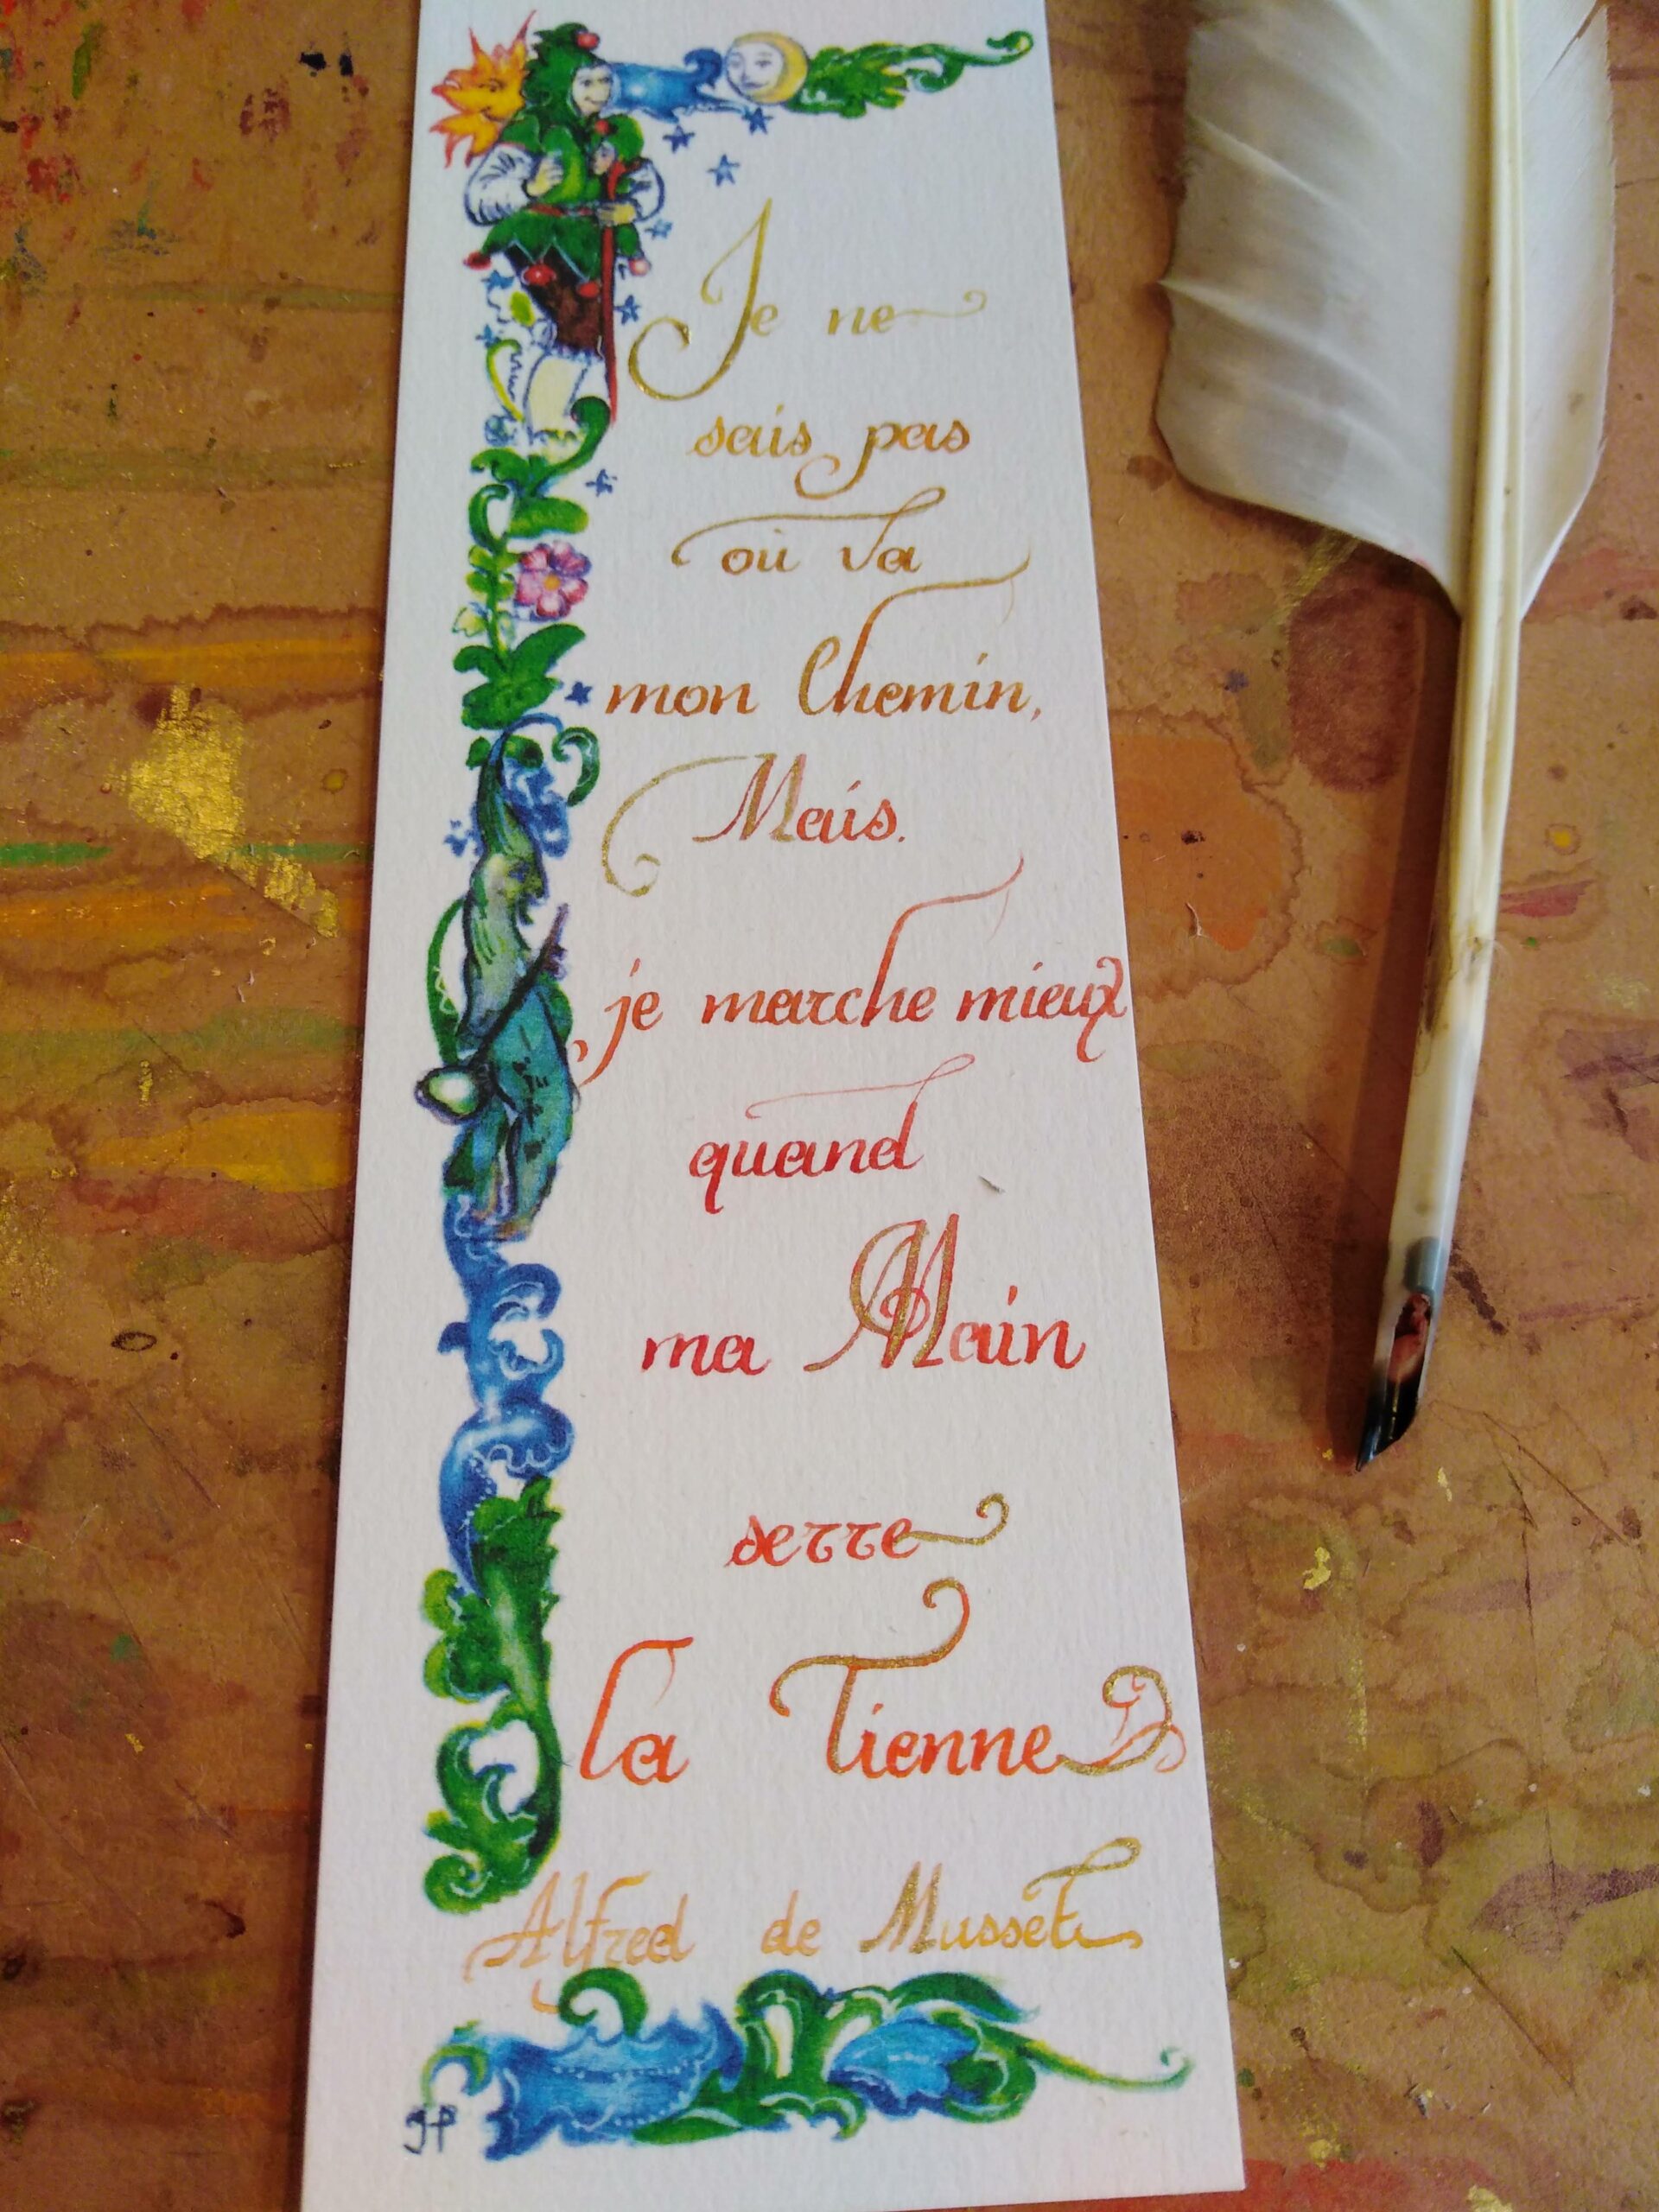 Je ne
sais pas
où va
mon Chemin,
Mais.
je marche mieux
quand
ma Main
serre
la Tienne
Alfred de Musset